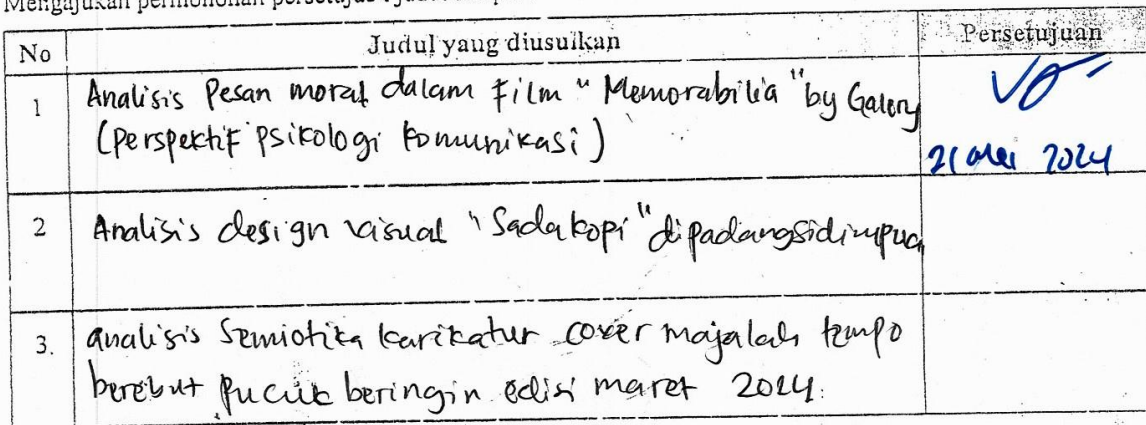 Mengajukan permohonan
No Judul yang diusulkan Persetujuan
1 Analisis Pesan moral dalam Film "Memorabilia" by Galery
(Perspektif psikologi komunikasi)
21 Mei 2024
2 Analisis design visual "Sada kopi" dipadangsidimpuan
3. analisis Semiotika karikatur cover majalah tempo
berebut pucuk beringin edisi maret 2024.